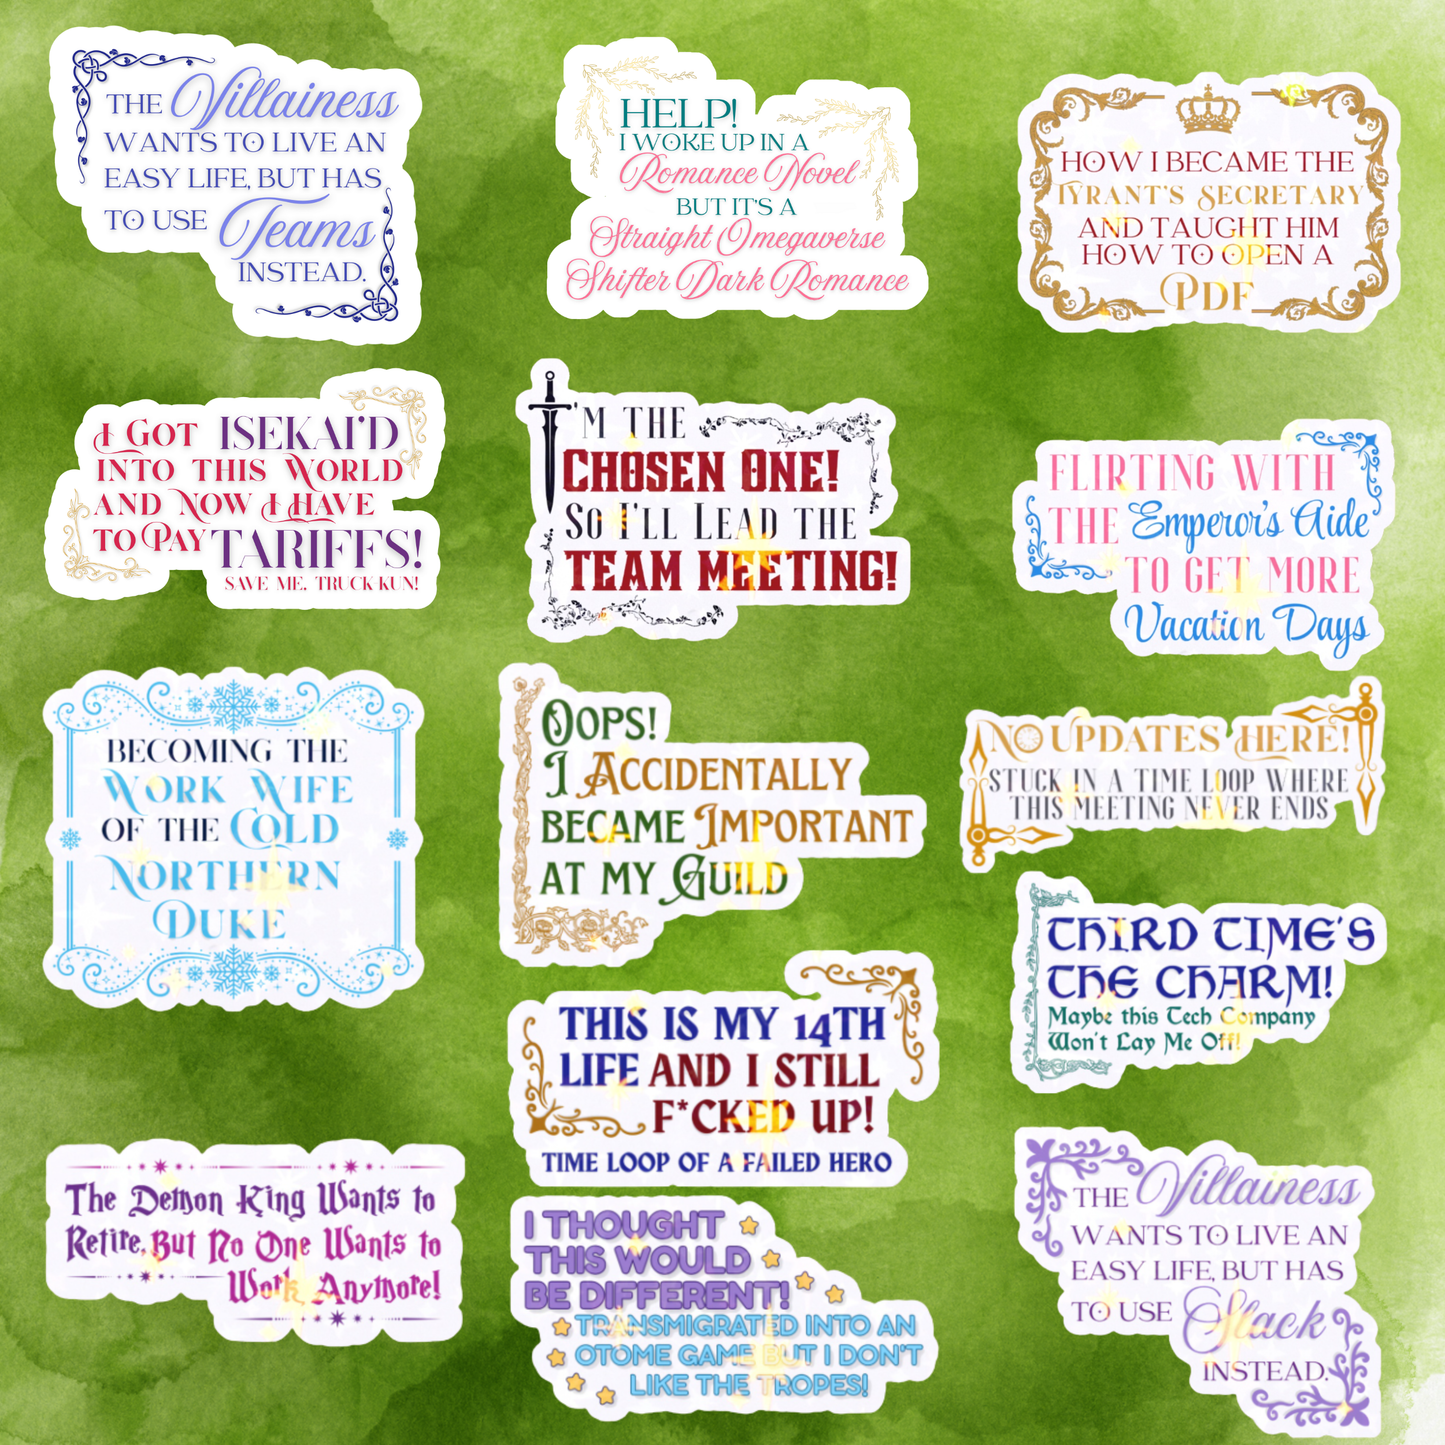 THE Villainess
WANTS TO LIVE AN
EASY LIFE, BUT HAS
TO USE Teams
INSTEAD.
HELP!
I WOKE UP IN A
Romance Novel
BUT IT'S A
Straight Omegaverse
Shifter Dark Romance
HOW I BECAME THE
TYRANT'S SECRETARY
AND TAUGHT HIM
HOW TO OPEN A
PDF
I GOT ISEKAI'D
INTO THIS WORLD
AND NOW I HAVE
TO PAY TARIFFS!
SAVE ME, TRUCK KUN!
I'M THE
CHOSEN ONE!
SO I'LL LEAD THE
TEAM MEETING!
FLIRTING WITH
THE Emperor's Aide
TO GET MORE
Vacation Days
BECOMING THE
WORK WIFE
OF THE COLD
NORTHERN
DUKE
OOPS!
I ACCIDENTALLY
BECAME IMPORTANT
AT MY GUILD
NO UPDATES HERE!
STUCK IN A TIME LOOP WHERE
THIS MEETING NEVER ENDS
THIRD TIME'S
THE CHARM!
Maybe this Tech Company
Won't Lay Me Off!
THIS IS MY 14TH
LIFE AND I STILL
F*CKED UP!
TIME LOOP OF A FAILED HERO
The Demon King Wants to
Retire, But No One Wants to
Work Anymore!
I THOUGHT
THIS WOULD
BE DIFFERENT!
TRANSMIGRATED INTO AN
OTOME GAME BUT I DON'T
LIKE THE TROPES!
THE Villainess
WANTS TO LIVE AN
EASY LIFE, BUT HAS
TO USE Slack
INSTEAD.